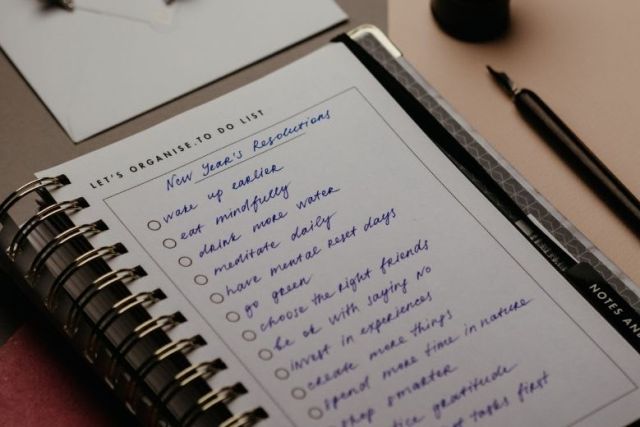 LET'S ORGANISE. TO DO LIST
New Year's Resolutions
wake up earlier
eat mindfully
drink more water
meditate daily
have mental reset days
go green
choose the right friends
be ok with saying NO
invest in experiences
create more things
spend more time in nature
shop smarter
gratitude
tasks first
NOTES